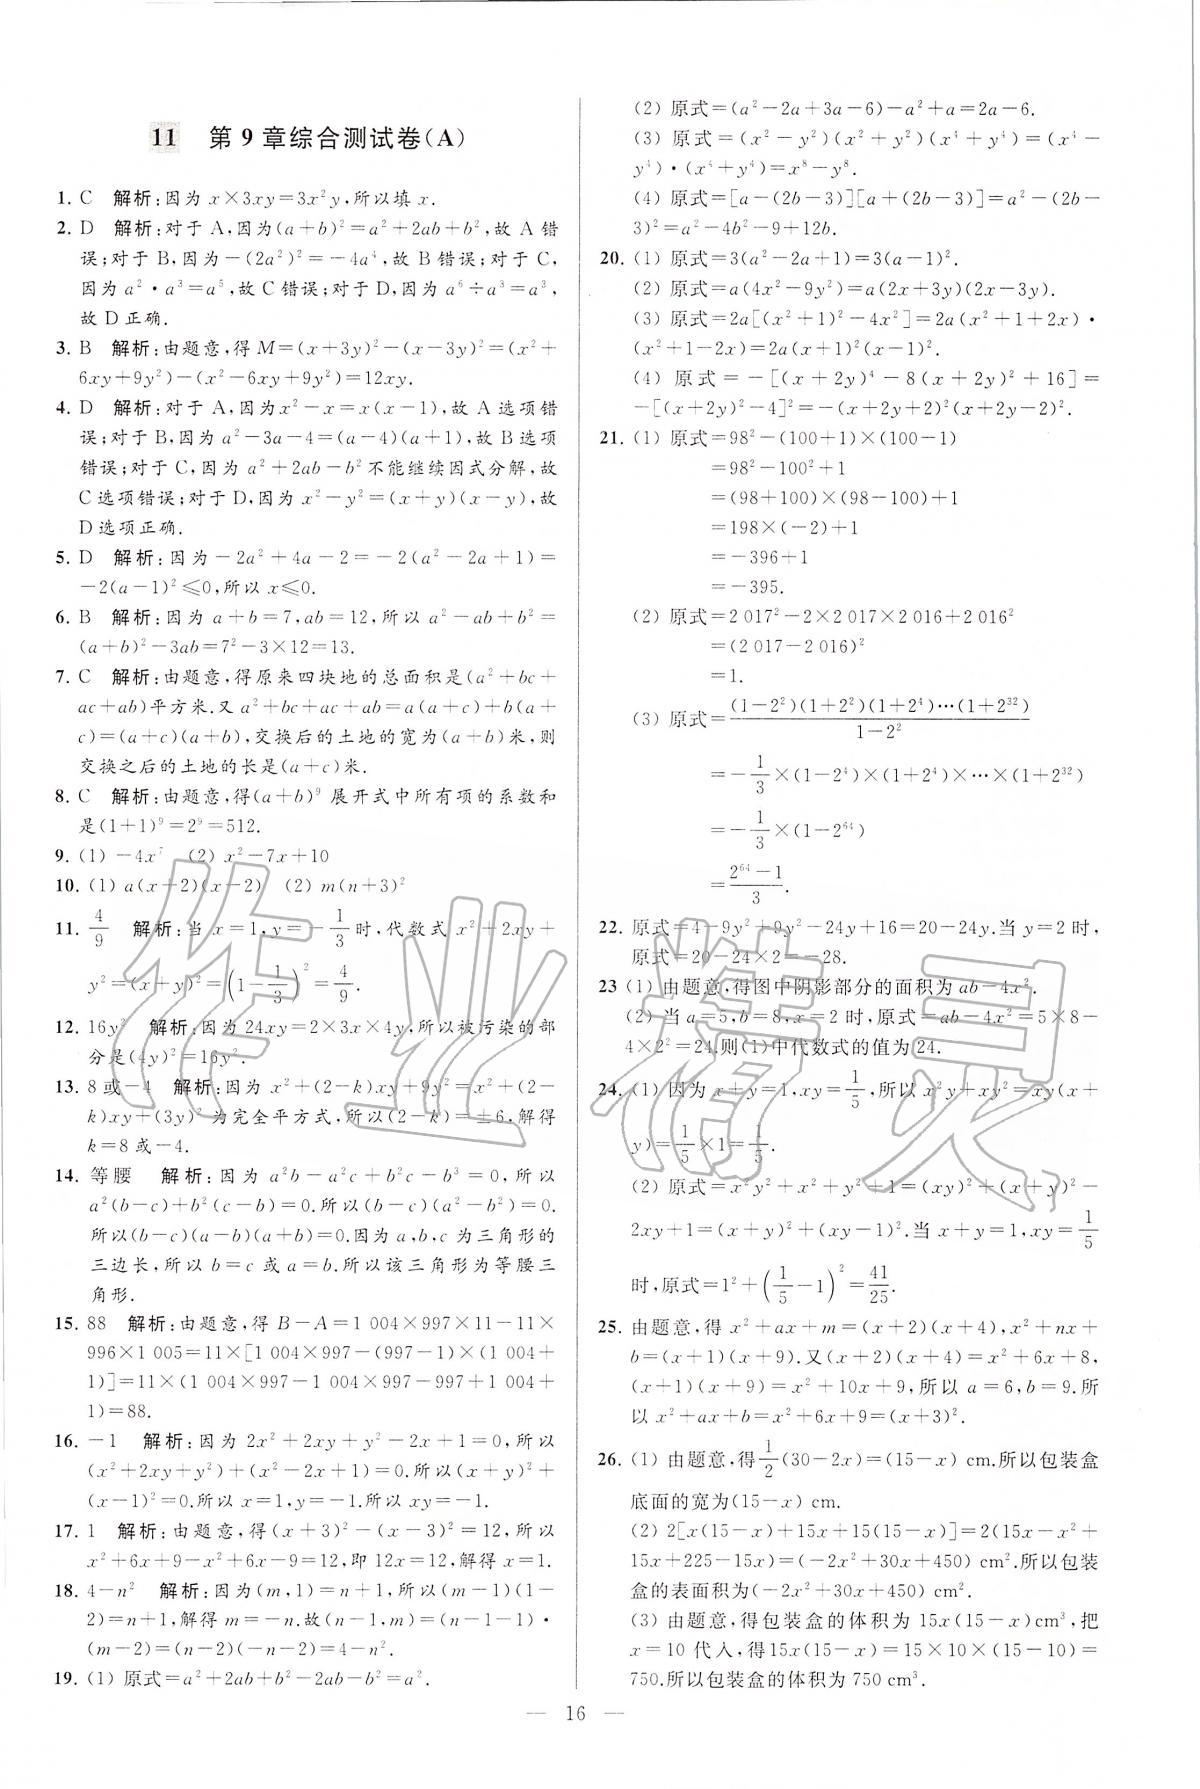 11 第9章综合测试卷(A)
1. C 解析:因为 x×3xy=3x²y,所以填 x.
2. D 解析:对于 A,因为(a+b)²=a²+2ab+b²,故 A 错
误;对于 B,因为-(2a²)²=-4a⁴,故 B 错误;对于 C,
因为 a²·a³=a⁵,故 C 错误;对于 D,因为 a⁶÷a³=a³,
故 D 正确.
3. B 解析:由题意,得 M=(x+3y)²-(x-3y)²=(x²+
6xy+9y²)-(x²-6xy+9y²)=12xy.
4. D 解析:对于 A,因为x²-x=x(x-1),故 A 选项错
误;对于 B,因为 a²-3a-4=(a-4)(a+1),故 B 选项
错误;对于 C,因为 a²+2ab-b²不能继续因式分解,故
C 选项错误;对于 D,因为 x²-y²=(x+y)(x-y),故
D 选项正确.
5. D 解析:因为-2a²+4a-2=-2(a²-2a+1)=
-2(a-1)²≤0,所以 x≤0.
6. B 解析:因为 a+b=7,ab=12,所以 a²-ab+b²=
(a+b)²-3ab=7²-3×12=13.
7. C 解析:由题意,得原来四块地的总面积是(a²+bc+
ac+ab)平方米.又 a²+bc+ac+ab=a(a+c)+b(a+
c)=(a+c)(a+b),交换后的土地的宽为(a+b)米,则
交换之后的土地的长是(a+c)米.
8. C 解析:由题意,得(a+b)⁹ 展开式中所有项的系数和
是(1+1)⁹=2⁹=512.
9. (1) -4x⁷ (2) x²-7x+10
10. (1) a(x+2)(x-2) (2) m(n+3)²
11. 4/9 解析:当 x=1,y=-1/3时,代数式 x²+2xy+
y²=(x+y)²=(1-1/3)²=4/9.
12. 16y² 解析:因为 24xy=2×3x×4y,所以被污染的部
分是(4y)²=16y².
13. 8或-4 解析:因为 x²+(2-k)xy+9y²=x²+(2-
k)xy+(3y)² 为完全平方式,所以(2-k)=±6,解得
k=8 或-4.
14. 等腰 解析:因为 a²b-a²c+b²c-b³=0,所以
a²(b-c)+b²(c-b)=0.所以(b-c)(a²-b²)=0.
所以(b-c)(a-b)(a+b)=0.因为 a,b,c 为三角形的
三边长,所以 b=c 或 a=b.所以该三角形为等腰三
角形.
15. 88 解析:由题意,得 B-A=1 004×997×11-11×
996×1 005=11×[1 004×997-(997-1)×(1 004+
1)]=11×(1 004×997-1 004×997-997+1 004+
1)=88.
16. -1 解析:因为 2x²+2xy+y²-2x+1=0,所以
(x²+2xy+y²)+(x²-2x+1)=0.所以(x+y)²+
(x-1)²=0.所以 x=1,y=-1.所以 xy=-1.
17. 1 解析:由题意,得(x+3)²-(x-3)²=12,所以
x²+6x+9-x²+6x-9=12,即 12x=12,解得 x=1.
18. 4-n² 解析:因为(m,1)=n+1,所以(m-1)(1-
2)=n+1,解得 m=-n.故(n-1,m)=(n-1-1)·
(m-2)=(n-2)(-n-2)=4-n².
19. (1) 原式=a²+2ab+b²-2ab-b²=a².
(2) 原式=(a²-2a+3a-6)-a²+a=2a-6.
(3) 原式=(x²-y²)(x²+y²)(x⁴+y⁴)=(x⁴-
y⁴)·(x⁴+y⁴)=x⁸-y⁸.
(4) 原式=[a-(2b-3)][a+(2b-3)]=a²-(2b-
3)²=a²-4b²-9+12b.
20. (1) 原式=3(a²-2a+1)=3(a-1)².
(2) 原式=a(4x²-9y²)=a(2x+3y)(2x-3y).
(3) 原式=2a[(x²+1)²-4x²]=2a(x²+1+2x)·
(x²+1-2x)=2a(x+1)²(x-1)².
(4) 原式=-[(x+2y)⁴-8(x+2y)²+16]=
-[(x+2y)²-4]²=-(x+2y+2)²(x+2y-2)².
21. (1) 原式=98²-(100+1)×(100-1)
=98²-100²+1
=(98+100)×(98-100)+1
=198×(-2)+1
=-396+1
=-395.
(2) 原式=2 017²-2×2 017×2 016+2 016²
=(2 017-2 016)²
=1.
(3) 原式=(1-2²)(1+2²)(1+2⁴)…(1+2³²)/1-2²
=-1/3×(1-2⁴)×(1+2⁴)×…×(1+2³²)
=-1/3×(1-2⁶⁴)
=2⁶⁴-1/3.
22. 原式=4-9y²+9y²-24y+16=20-24y.当 y=2 时,
原式=20-24×2=-28.
23 (1) 由题意,得图中阴影部分的面积为 ab-4x².
(2) 当 a=5,b=8,x=2 时,原式=ab-4x²=5×8-
4×2²=24.则(1)中代数式的值为 24.
24. (1) 因为 x+y=1,xy=1/5,所以 x²y+xy²=xy(x+
y)=1/5×1=1/5.
(2) 原式=x²y²+x²+y²+1=(xy)²+(x+y)²-
2xy+1=(x+y)²+(xy-1)².当 x+y=1,xy=1/5
时,原式=1²+(1/5-1)²=41/25.
25. 由题意,得 x²+ax+m=(x+2)(x+4),x²+nx+
b=(x+1)(x+9).又(x+2)(x+4)=x²+6x+8,
(x+1)(x+9)=x²+10x+9,所以 a=6,b=9.所
以 x²+ax+b=x²+6x+9=(x+3)².
26. (1) 由题意,得1/2(30-2x)=(15-x) cm.所以包装盒
底面的宽为(15-x) cm.
(2) 2[x(15-x)+15x+15(15-x)]=2(15x-x²+
15x+225-15x)=(-2x²+30x+450) cm².所以包装
盒的表面积为(-2x²+30x+450) cm².
(3) 由题意,得包装盒的体积为 15x(15-x)cm³,把
x=10 代入,得15x(15-x)=15×10×(15-10)=
750.所以包装盒的体积为 750 cm³.
— 16 —
作业精灵